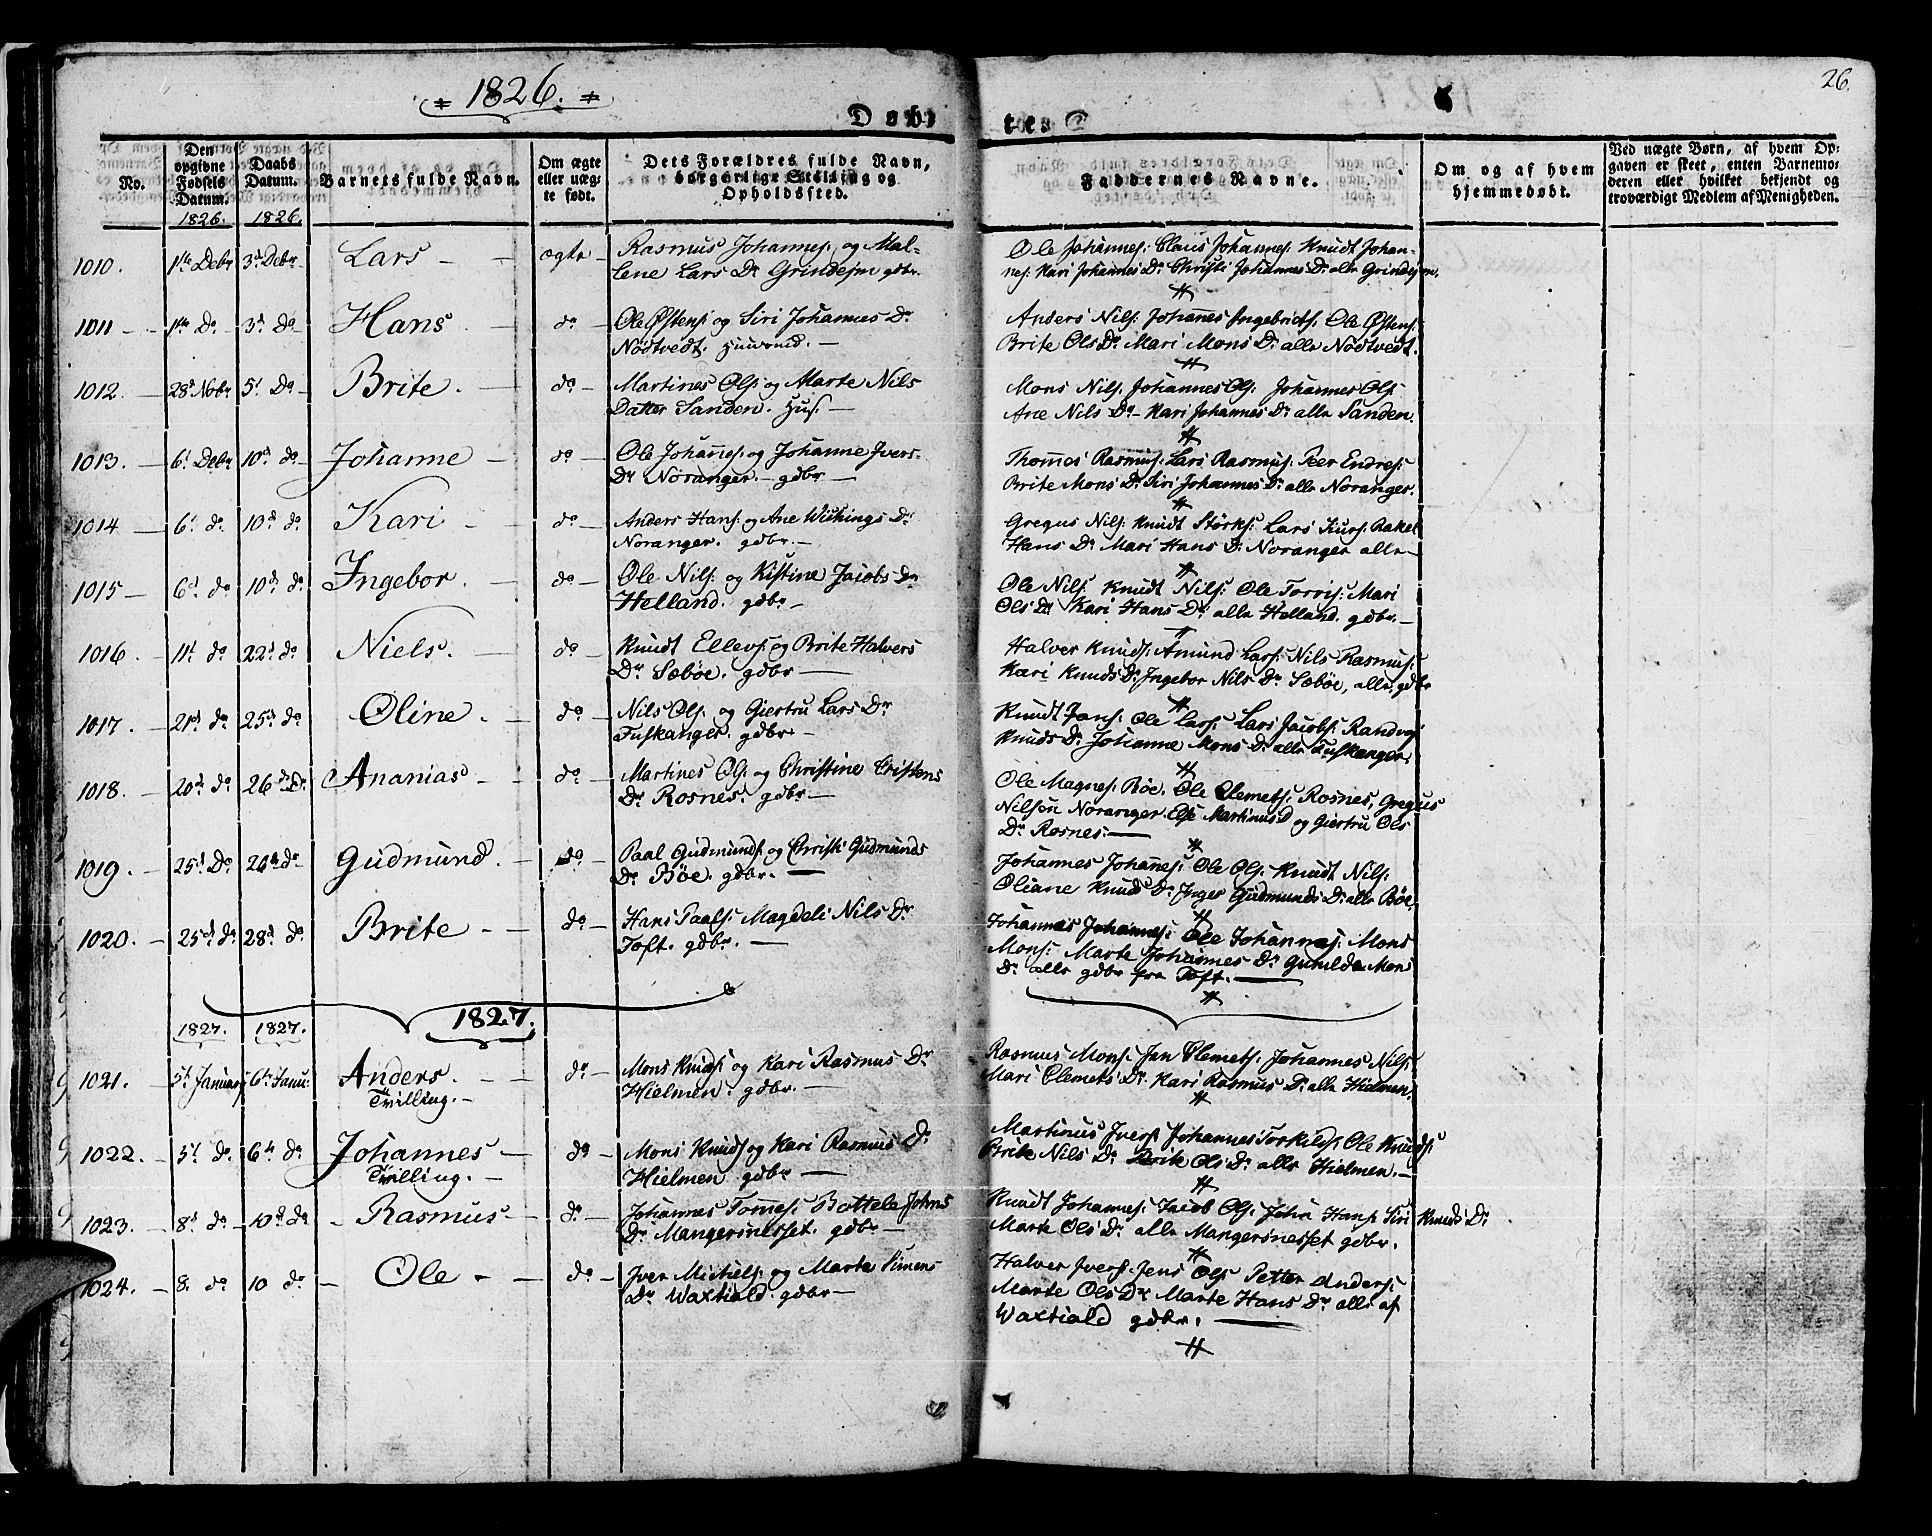 1826.
26.
Døbte
No.
Den opgivne Fødsels Datum. 1826.
Daabs Datum. 1826.
Barnets fulde Navn.
Om ægte eller uægte født.
Dets Forældres fulde Navn, borgerlige Stilling og Opholdsted.
Faddernes Navne.
Om og af hvem hjemmedøbt.
Ved uægte Børn, af hvem Opgaven er skeet, enten Barnemoderen eller hvilket bekjendt og troværdigt Medlem af Menigheden.
1010. 1te Debr 3d Debr Lars ægte Rasmus Johannes: og Mal-
lene Lars Dr Grindejm gdbr.
Ole Johannes: Claus Johannes: Knudt Johan-
nes: Kari Johannes Dr Christi Johannes Dr alle Grindejm.
1011 1te do 3d do Hans do Ole Østens: og Siri Johannes Dr
Nödtvedt. Huusmd.
Anders Nils: Johannes Ingebricts: Ole Østens:
Brite Ols Dr Mari Mons Dr alle Nödtvedt.
1012. 28d Nobr 5t Do Brite. do Martines Ols: og Marte Nils
Datter Sanden. Hus:
Mons Nils: Johannes Ols: Johannes Ols:
Ane Nils Dr Kari Johannes Dr alle Sanden.
1013. 6t Debr 10d do Johanne do Ole Johannes: og Johanne Ivers
Dr Noranger. gdbr
Thommes Rasmus: Lars Rasmus: Peer Endres:
Brite Mons Dr Siri Johannes Dr alle Noranger.
1014 6t do 10d do Kari do Anders Hans: og Ane Wichings Dr
Noranger. gdbr.
Gregus Nils: Knudt Störks: Lars Rakel
Hans Dr Mari Hans Dr Noranger alle
1015 6d do 10d do Ingebor. do Ole Nils: og Kistine Jacobs Dr
Helland. gdbr
Ole Nils: Knudt Nils: Ole Torris: Mari
Ols Dr Kari Hans Dr alle Helland. gdbr.
1016. 11t do 22d do Niels. do Knudt Ellevs: og Brite Halvers
Dr Sæbøe. gdbr
Halver Knuds: Amund Lars: Nils Rasmus:
Kari Knuds Dr Ingebor Nils Dr Sæbøe, alle gdbr
1017. 21d do 25d do Oline. do Nils Ols: og Giertru Lars Dr
Fuskanger. gdbr
Knudt Jans: Ole Lars: Lars Jacobs: Randvej
Knuds Dr Johanne Mons Dr alle Fuskanger.
1018. 20d do 26d do Ananias do Martines Ols: og Christine Cristens
Dr Rosnes. gdbr
Ole Magnes: Bøe. Ole Clemets: Rosnes, Gregus
Nilsøn Noranger. Else Martinus D og Giertru Ols
Dr Rosnes.
1019. 25d Do 26d do Gudmund. do Paal Gudmunds: og Christi Gudmunds
Dr Bøe. gdbr.
Johannes Johannes: Ole Ols: Knudt Nils:
Oliane Knuds Dr Inger Gudmunds Dr alle Bøe.
1020. 25d do 28d do Brite do Hans Paals: Magdeli Nils Dr
Toft. gdbr.
Johannes Johannes: Ole Johannes: Mons
Mons: Marte Johannes Dr Gunilde Mons
Dr alle gdbr fra Toft.
1827. 1827. 1827.
1021. 5t January 6te Janu: Anders. do Mons Knuds: og Kari Rasmus Dr
Tvilling. Hielmen. gdbr.
Rasmus Mons: Jan Clemets: Johannes Nils:
Mari Clemets Dr. Kari Rasmus Dr alle Hielmen.
1022. 5t do 6te do Johannes do Mons Knuds: og Kari Rasmus Dr
Tvilling. Hielmen gdbr
Martinus Ivers: Johannes Torkilds: Ole Knuds:
Brite Nils Dr Brite Ols Dr alle Hielmen.
1023. 8d do 10d do Rasmus do Johannes Tomes: Bottele Johns
Dr Mangersnesset. gdbr
Knudt Johannes: Jacob Ols: John Hans: Siri Knuds Dr
Marte Ols Dr alle Mangersnesset gdbr.
1024. 8. do 10 do Ole do Iver Michels: og Marte Simens
Dr Waxtiald. gdbr
Halver Ivers: Jens Ols: Petter Anders:
Marte Ols Dr Marte Hans Dr alle af
Waxtiald gdbr.